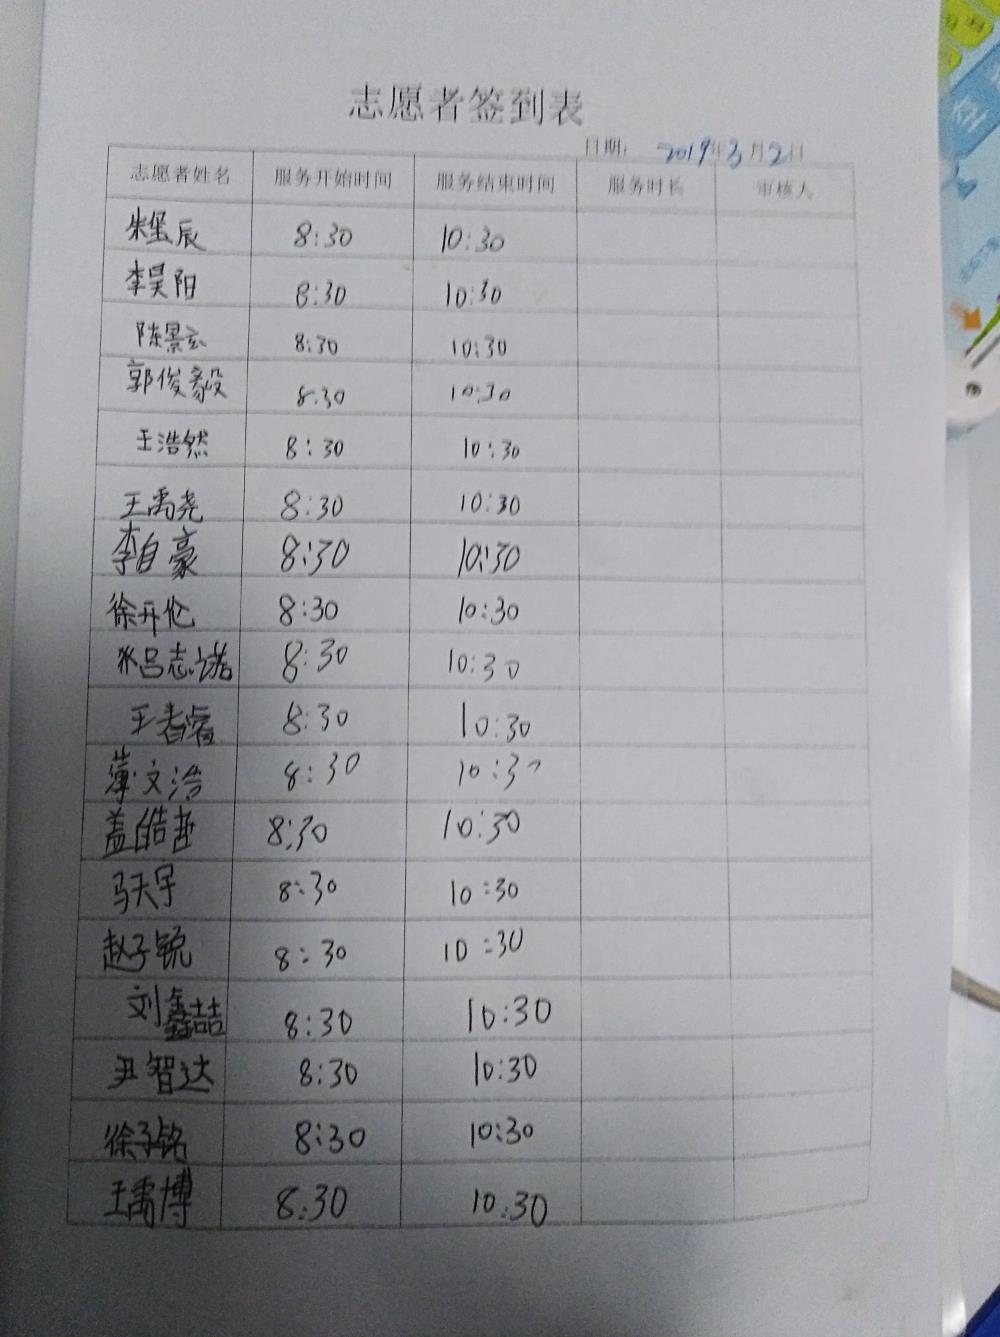 志愿者签到表
日期： 2019年3月2日
志愿者姓名 服务开始时间 服务结束时间 服务时长 审核人
朱垦辰 8:30 10:30
李昊阳 8:30 10:30
陈景玄 8:30 10:30
郭俊毅 8:30 10:30
王浩然 8:30 10:30
王禹尧 8:30 10:30
李自豪 8:30 10:30
徐开伦 8:30 10:30
张吕志诺 8:30 10:30
王春睿 8:30 10:30
薄文浩 8:30 10:30
盖皓哲 8:30 10:30
马天宇 8:30 10:30
赵子锐 8:30 10:30
刘鑫喆 8:30 10:30
尹智达 8:30 10:30
徐子铭 8:30 10:30
王禹博 8:30 10:30